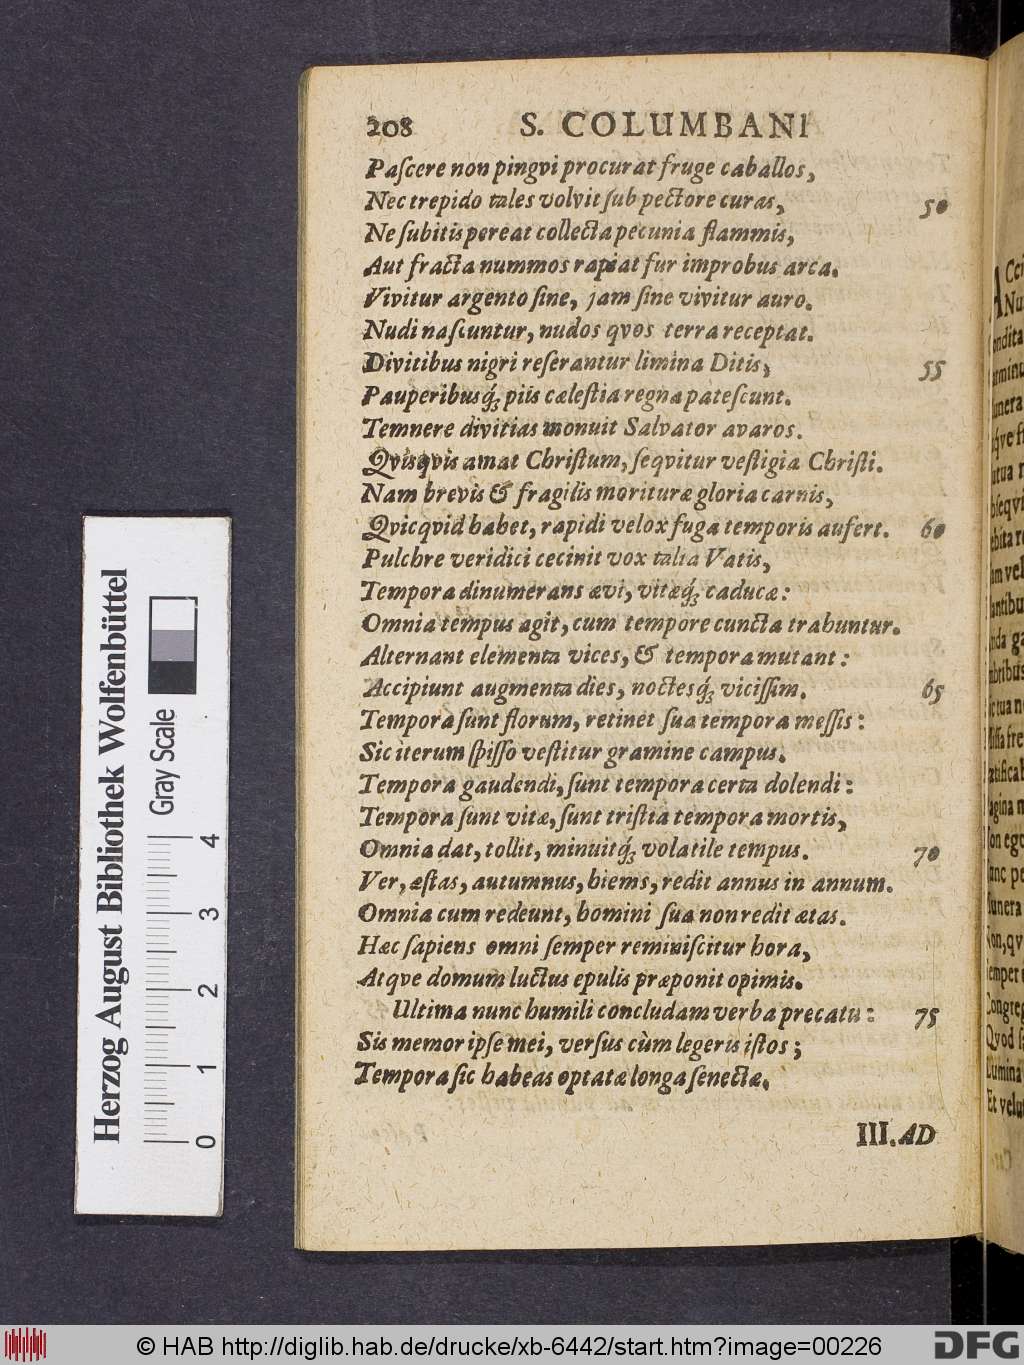 208 S. COLUMBANI
Paſcere non pingvi procurat fruge caballos,
Nec trepido tales volvit ſub pectore curas, 50
Ne ſubitis pereat collecta pecunia flammis,
Aut fracta nummos rapiat fur improbus arca.
Vivitur argento ſine, jam ſine vivitur auro.
Nudi naſcuntur, nudos qvos terra receptat.
Divitibus nigri reſerantur limina Ditis, 55
Pauperibusq́; piis cæleſtia regna pateſcunt.
Temnere divitias monuit Salvator avaros.
Qvisqvis amat Chriſtum, ſeqvitur veſtigia Chriſti.
Nam brevis & fragilis morituræ gloria carnis,
Qvicqvid habet, rapidi velox fuga temporis aufert. 60
Pulchre veridici cecinit vox talia Vatis,
Tempora dinumerans ævi, vitæq́; caducæ:
Omnia tempus agit, cum tempore cuncta trahuntur.
Alternant elementa vices, & tempora mutant:
Accipiunt augmenta dies, noctesq́; viciſſim. 65
Tempora ſunt florum, retinet ſua tempora meſſis:
Sic iterum ſpiſſo veſtitur gramine campus.
Tempora gaudendi, ſunt tempora certa dolendi:
Tempora ſunt vitæ, ſunt triſtia tempora mortis,
Omnia dat, tollit, minuitq́; volatile tempus. 70
Ver, æſtas, autumnus, hiems, redit annus in annum.
Omnia cum redeunt, homini ſua non redit ætas.
Hæc ſapiens omni ſemper reminiſcitur hora,
Atqve domum luctus epulis præponit opimis.
Ultima nunc humili concludam verba precatu: 75
Sis memor ipſe mei, verſus cùm legeris iſtos;
Tempora ſic habeas optatæ longa ſenectæ.
III. AD
Herzog August Bibliothek Wolfenbüttel
Gray Scale
0 1 2 3 4
© HAB http://diglib.hab.de/drucke/xb-6442/start.htm?image=00226
DFG